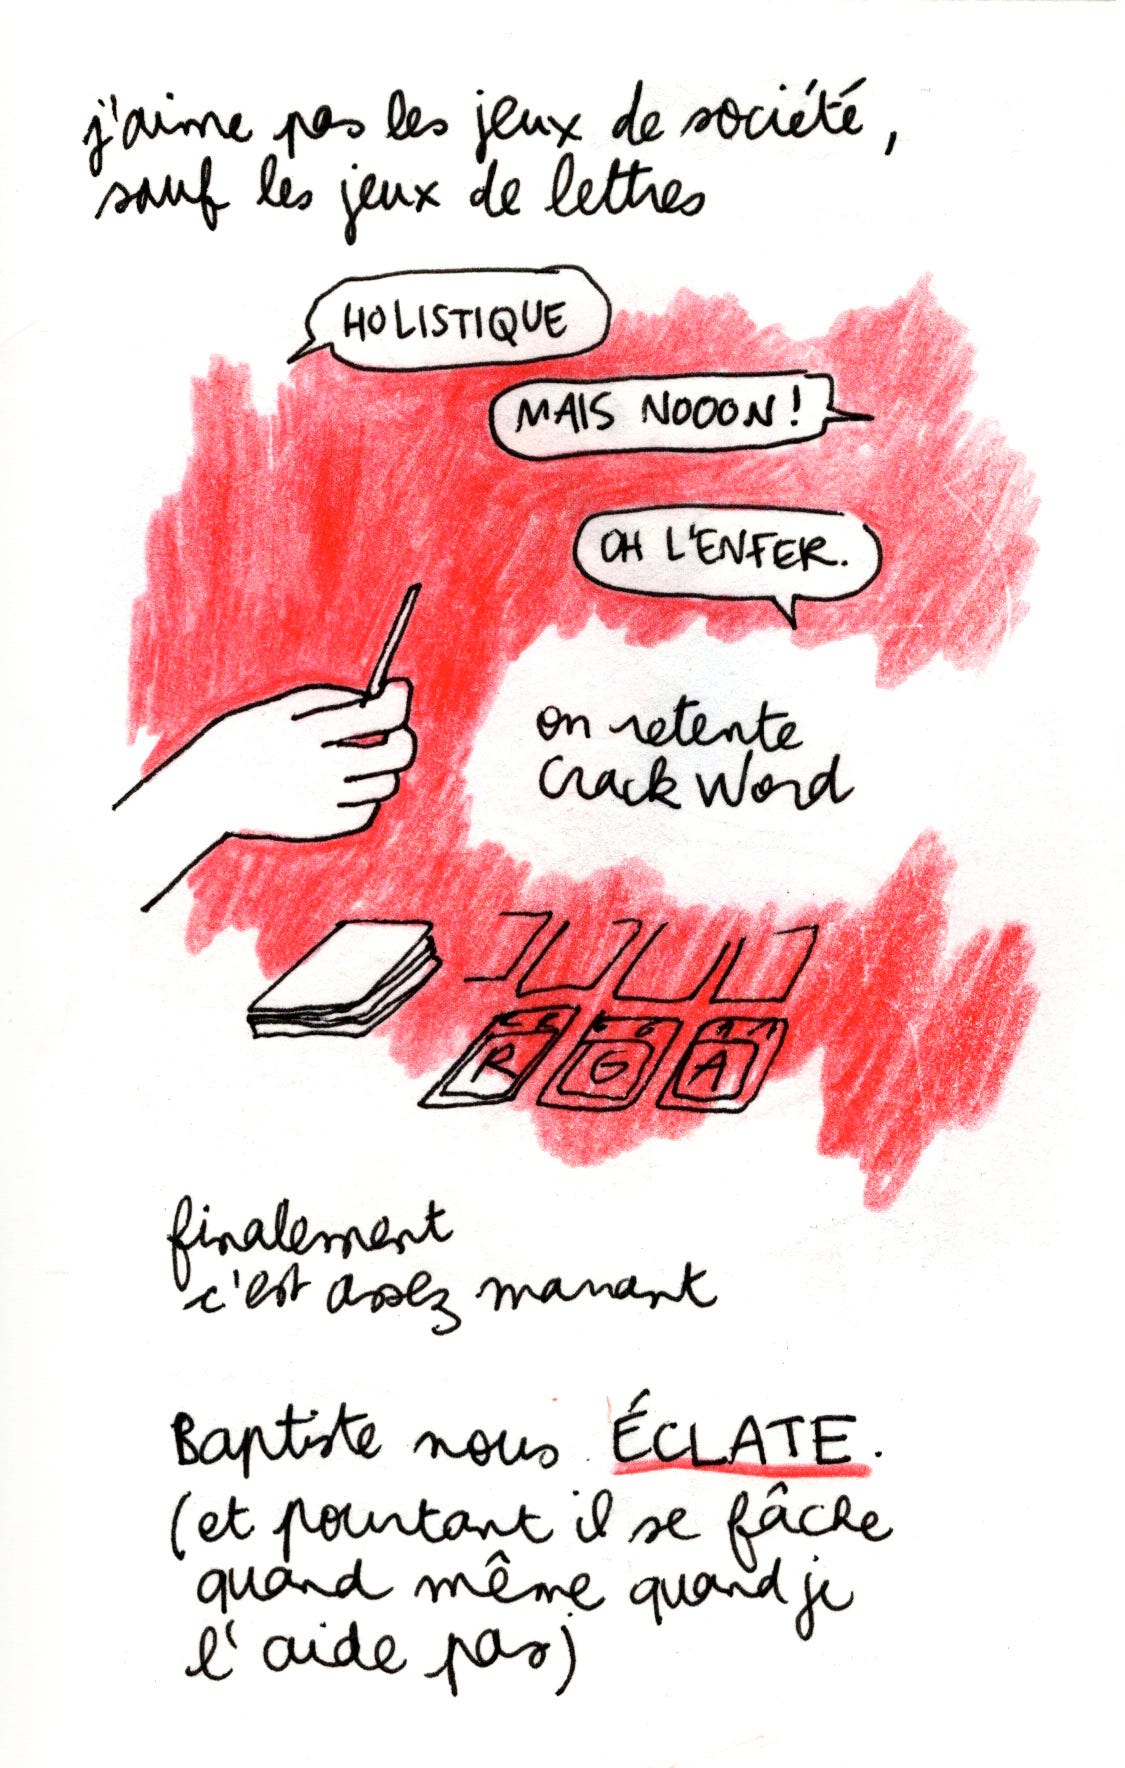 j'aime pas les jeux de société,
sauf les jeux de lettres
HOLISTIQUE
MAIS NOOON !
OH L'ENFER.
on retente
Crack Word
R G A
finalement
c'est assez marrant
Baptiste nous ÉCLATE.
(et pourtant il se fâche
quand même quand je
l'aide pas)